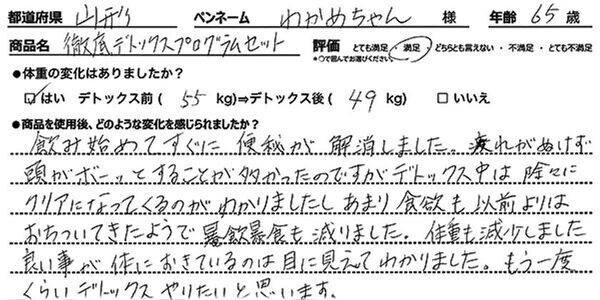 都道府県 山形 ペンネーム わかめちゃん 様 年齢 65 歳
商品名 徹底デトックスプログラムセット 評価 とても満足 ・ 満足 ・ どちらとも言えない ・ 不満足 ・ とても不満足
*○で囲んでお選びください。
●体重の変化はありましたか?
☑はい デトックス前 ( 55 kg)⇒デトックス後 ( 49 kg) □いいえ
●商品を使用後、どのような変化を感じられましたか?
飲み始めてすぐに 便秘が 解消しました。疲れがぬけず
頭がボーッとすることが多かったのですがデトックス中は 除々に
クリアになってくるのがわかりましたし あまり 食欲も 以前よりは
おちついてきたようで 暴飲暴食も減りました。体重も減少しました
良い事が 体におきているのは 目に見えてわかりました。もう一度
くらい デトックス やりたいと思います。